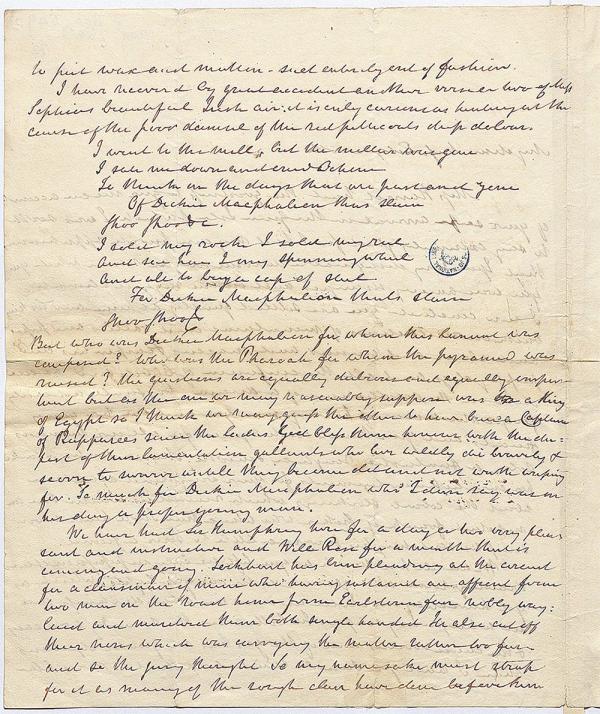 to put wax and mutton-suet entirely out of fashion.
I have recoverd by great accident another verse or two of Miss
Sophia's beautiful Irish air: it is only curious as hinting at the
cause of the poor damsel of the red petticoats deep dolour.
I went to the mill, but the miller was gone
I sate me down and cried Ochone
To think on the days that are past and gone
Of Dickie Macphalion thats slain
Shoo Shoo &c.
I sold my rock I sold my reel
And sae hae I my spinning wheel
And all to buy a cap of steel
For Dickie Macphalion thats slain
Shoo Shoo &c
But who was Dickie Macphalion for whom this lament was
composed? Who was the Pharaoh for whom the pyramid was
raised? The questions are equally dubious and equally impor-
tant but as the one we may reasonably suppose was a King
of Egypt so I think we may guess the other to have been a Captain
of Rapparees since the ladies God bless them honour with the de-
pest of their lamentation gallants who live wildly die bravely &
scorn to survive untill they become old and not worth weeping
for. So much for Dickie Macphalion who I dare say was in
his day a proper young man.
We have had Sir Humphry here for a day or two very plea-
sant and instructive and Will Rose for a month that is
coming and going. Lockhart has been pleading at the circuit
for a clansman of mine who having sustaind an affront from
two men on the road home from Earlstown fair nobly way-
laid and murdered them both single handed He also cut off
their noses which was carrying the matter rather too far
and so the jury thought So my namesake must strap
for it as many of the rough clan have done before him